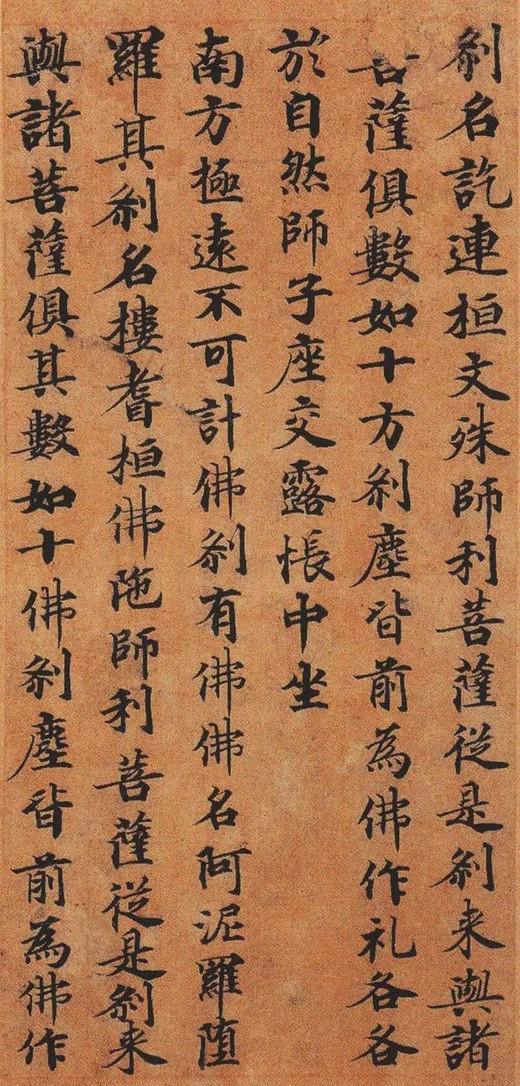 刹名訖連桓文殊師利菩薩従是刹来與諸
菩薩俱數如十方刹塵皆前為佛作礼各各
於自然師子座交露帳中坐
南方極遠不可計佛刹有佛佛名阿泥羅墮
羅其刹名樓耆桓佛陁師利菩薩従是刹来
與諸菩薩俱其數如十佛刹塵皆前為佛作